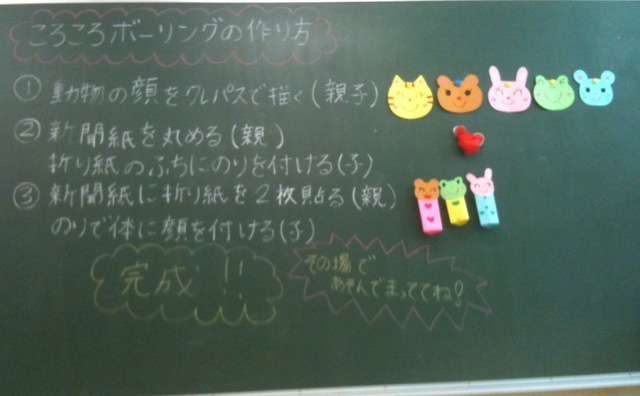 ころころボーリングの作り方
① 動物の顔をクレパスで描く(親子)
② 新聞紙を丸める(親)
折り紙のふちにのりを付ける(子)
③ 新聞紙に折り紙を2枚貼る(親)
のりで体に顔を付ける(子)
完成!!
その場で
あそんでまっててね!